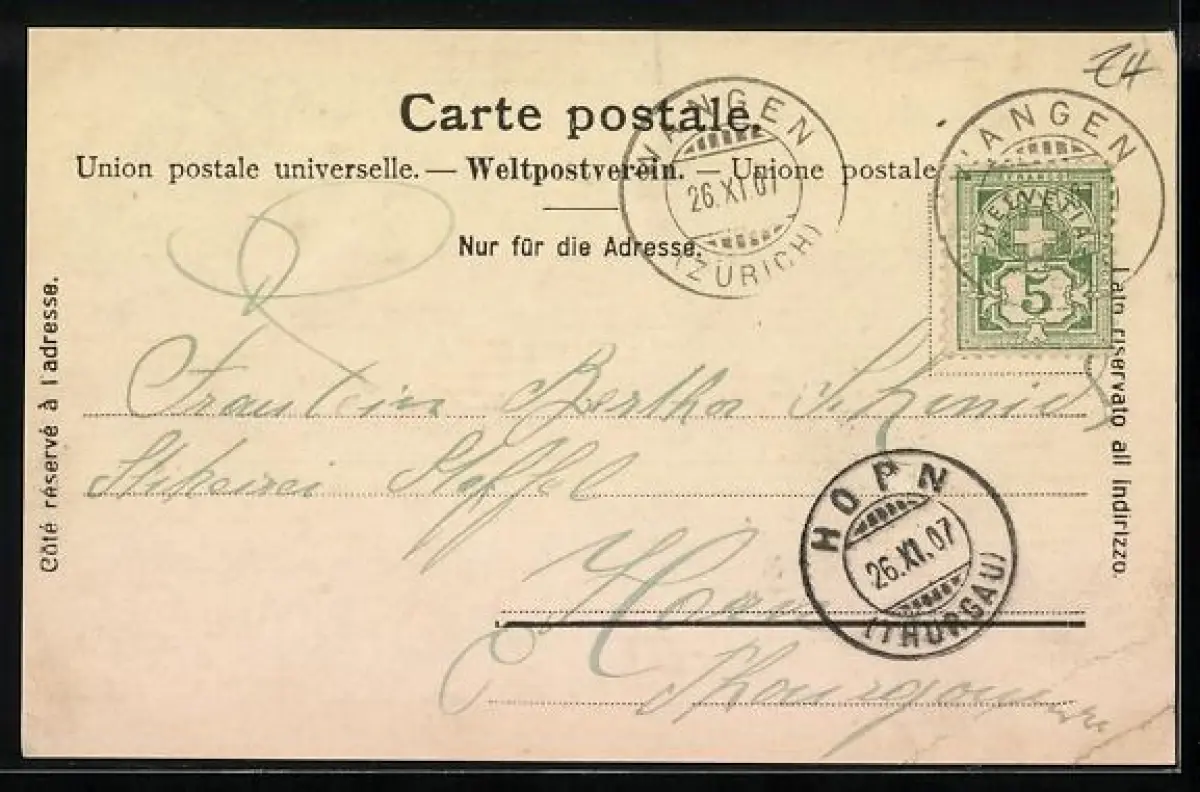 24
Carte postale.
Union postale universelle. — Weltpostverein. — Unione postale
Nur für die Adresse.
Côté réservé à l'adresse.
Lato riservato all indirizzo.
WANGEN
26.XI.07
(ZÜRICH)
WANGEN
FRANCO
HELVETIA
5
Fräulein Bertha Schmid
Stikerei Staffel
Horn
Thurgau
HORN
26.XI.07
(THURGAU)